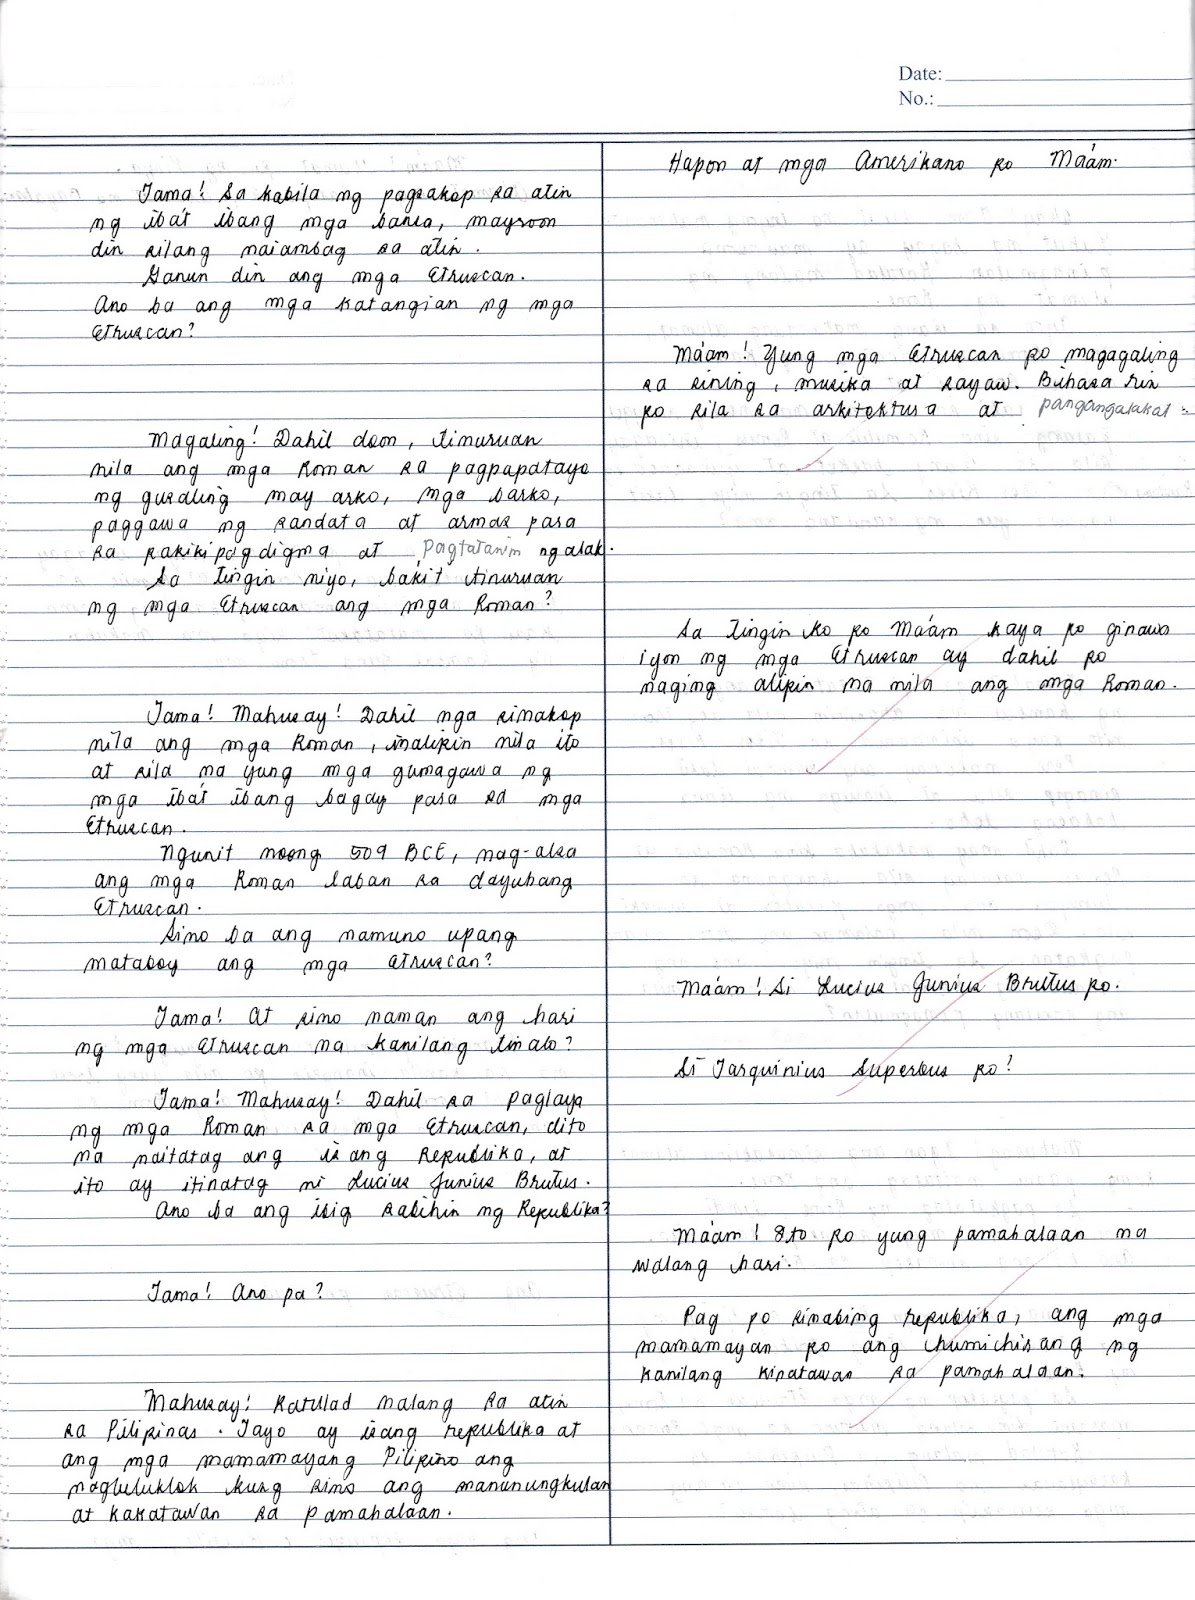 Date:
No.:
Tama! Sa kabila ng pagsakop sa atin
ng iba't ibang mga bansa, mayroon
din silang naiambag sa atin.
Ganun din ang mga Etruscan.
Ano ba ang mga katangian ng mga
Etruscan?
Magaling! Dahil doon, tinuruan
nila ang mga Roman sa pagpapatayo
ng gusaling may arko, mga barko,
paggawa ng sandata at armas para
sa pakikipagdigma at pagtatanim ng alak.
Sa tingin niyo, bakit tinuruan
ng mga Etruscan ang mga Roman?
Tama! Mahusay! Dahil nga sinakop
nila ang mga Roman, inalipin nila ito
at sila na yung mga gumagawa ng
mga iba't ibang bagay para sa mga
Etruscan.
Ngunit noong 509 BCE, nag-alsa
ang mga Roman laban sa dayuhang
Etruscan.
Sino ba ang namuno upang
mataboy ang mga Etruscan?
Tama! At sino naman ang hari
ng mga Etruscan na kanilang tinalo?
Tama! Mahusay! Dahil sa paglaya
ng mga Roman sa mga Etruscan, dito
na naitatag ang isang Republika, at
ito ay itinatag ni Lucius Junius Brutus.
Ano ba ang ibig sabihin ng Republika?
Tama! Ano pa?
Mahusay! Katulad nalang sa atin
sa Pilipinas. Tayo ay isang republika at
ang mga mamamayang Pilipino ang
nagluluklok kung sino ang manunungkulan
at kakatawan sa pamahalaan.
Hapon at mga Amerikano po Ma'am.
Ma'am! Yung mga Etruscan po magagaling
sa sining, musika at sayaw. Bihasa rin
po sila sa arkitektura at pangangalakal.
Sa tingin ko po Ma'am kaya po ginawa
iyon ng mga Etruscan ay dahil po
naging alipin na nila ang mga Roman.
Ma'am! Si Lucius Junius Brutus po.
Si Tarquinius Superbus po!
Ma'am! Ito po yung pamahalaan na
walang hari.
Pag po sinabing republika, ang mga
mamamayan po ang humihirang ng
kanilang kinatawan sa pamahalaan.